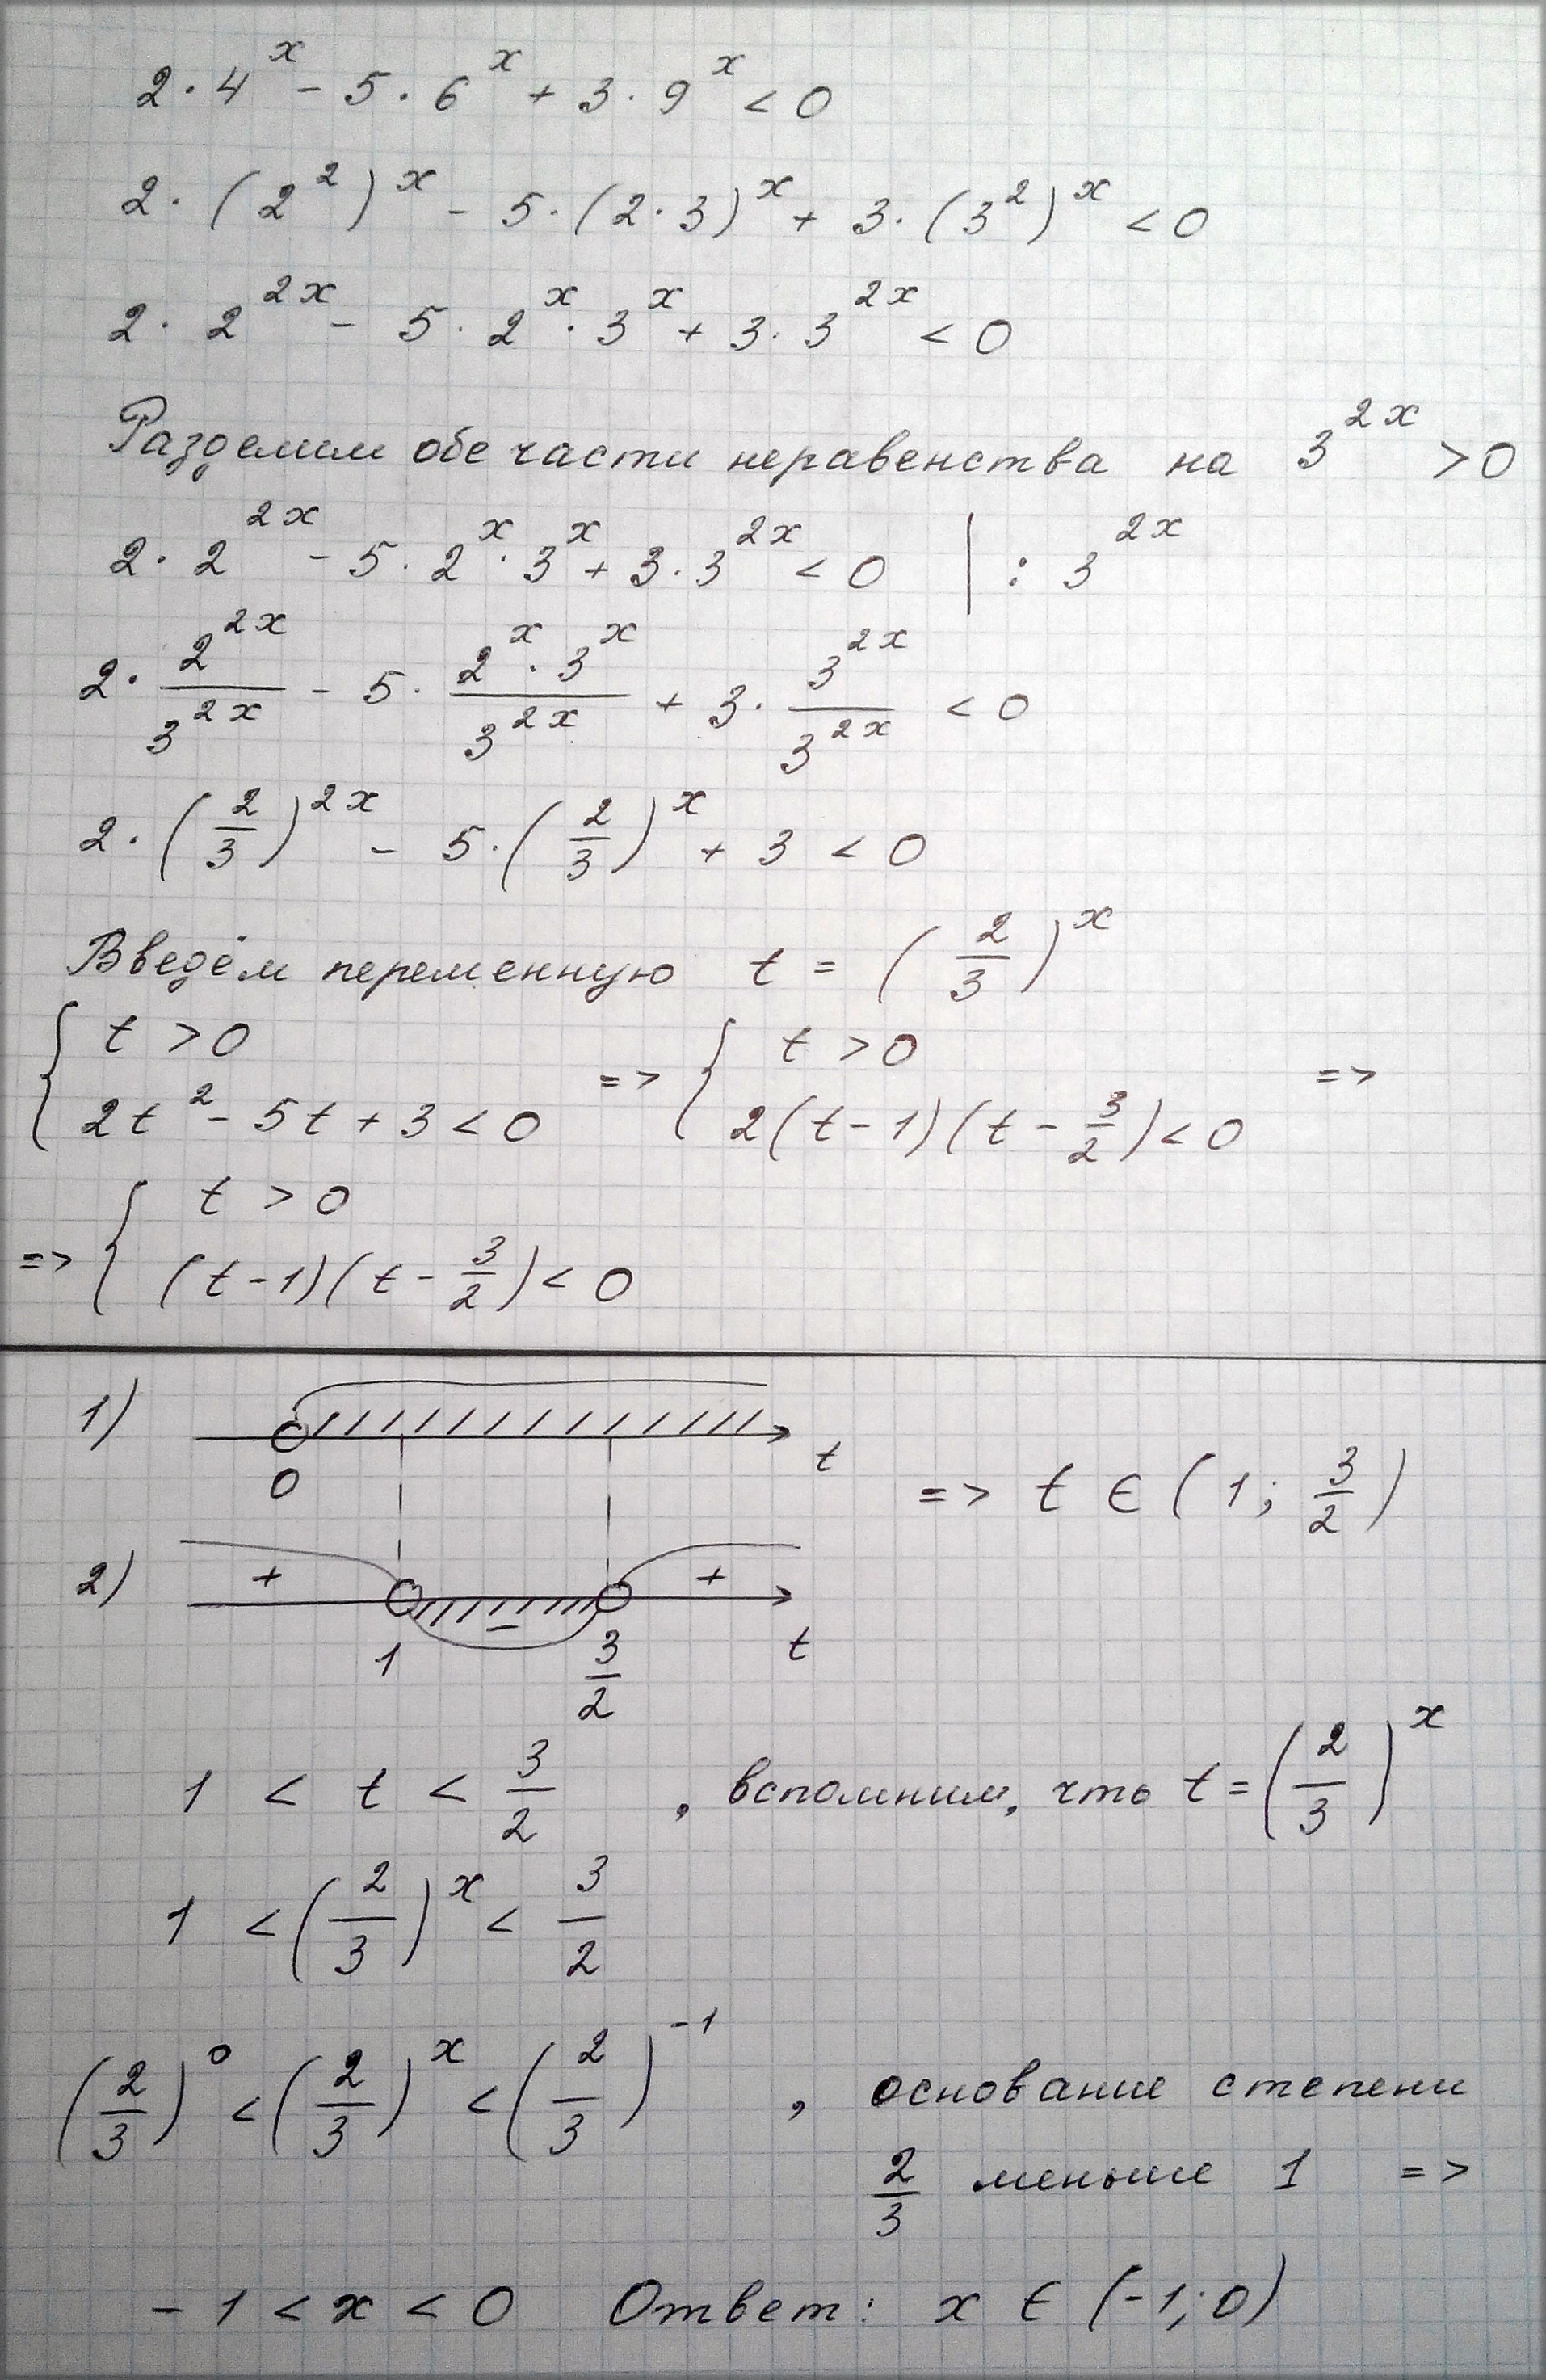 2·4^x - 5·6^x + 3·9^x < 0
2·(2^2)^x - 5·(2·3)^x + 3·(3^2)^x < 0
2·2^{2x} - 5·2^x·3^x + 3·3^{2x} < 0
Разделим обе части неравенства на 3^{2x} > 0
2·2^{2x} - 5·2^x·3^x + 3·3^{2x} < 0 | : 3^{2x}
2·\frac{2^{2x}}{3^{2x}} - 5·\frac{2^x·3^x}{3^{2x}} + 3·\frac{3^{2x}}{3^{2x}} < 0
2·(\frac{2}{3})^{2x} - 5·(\frac{2}{3})^x + 3 < 0
Введём переменную t = (\frac{2}{3})^x
{ t > 0
2t^2 - 5t + 3 < 0
=> { t > 0
2(t-1)(t-\frac{3}{2}) < 0 =>
=> { t > 0
(t-1)(t-\frac{3}{2}) < 0
1) 0 t
=> t ∈ (1; \frac{3}{2})
2) + - +
1 \frac{3}{2} t
1 < t < \frac{3}{2} , вспомним, что t = (\frac{2}{3})^x
1 < (\frac{2}{3})^x < \frac{3}{2}
(\frac{2}{3})^0 < (\frac{2}{3})^x < (\frac{2}{3})^{-1} , основание степени
\frac{2}{3} меньше 1 =>
-1 < x < 0 Ответ: x ∈ (-1; 0)